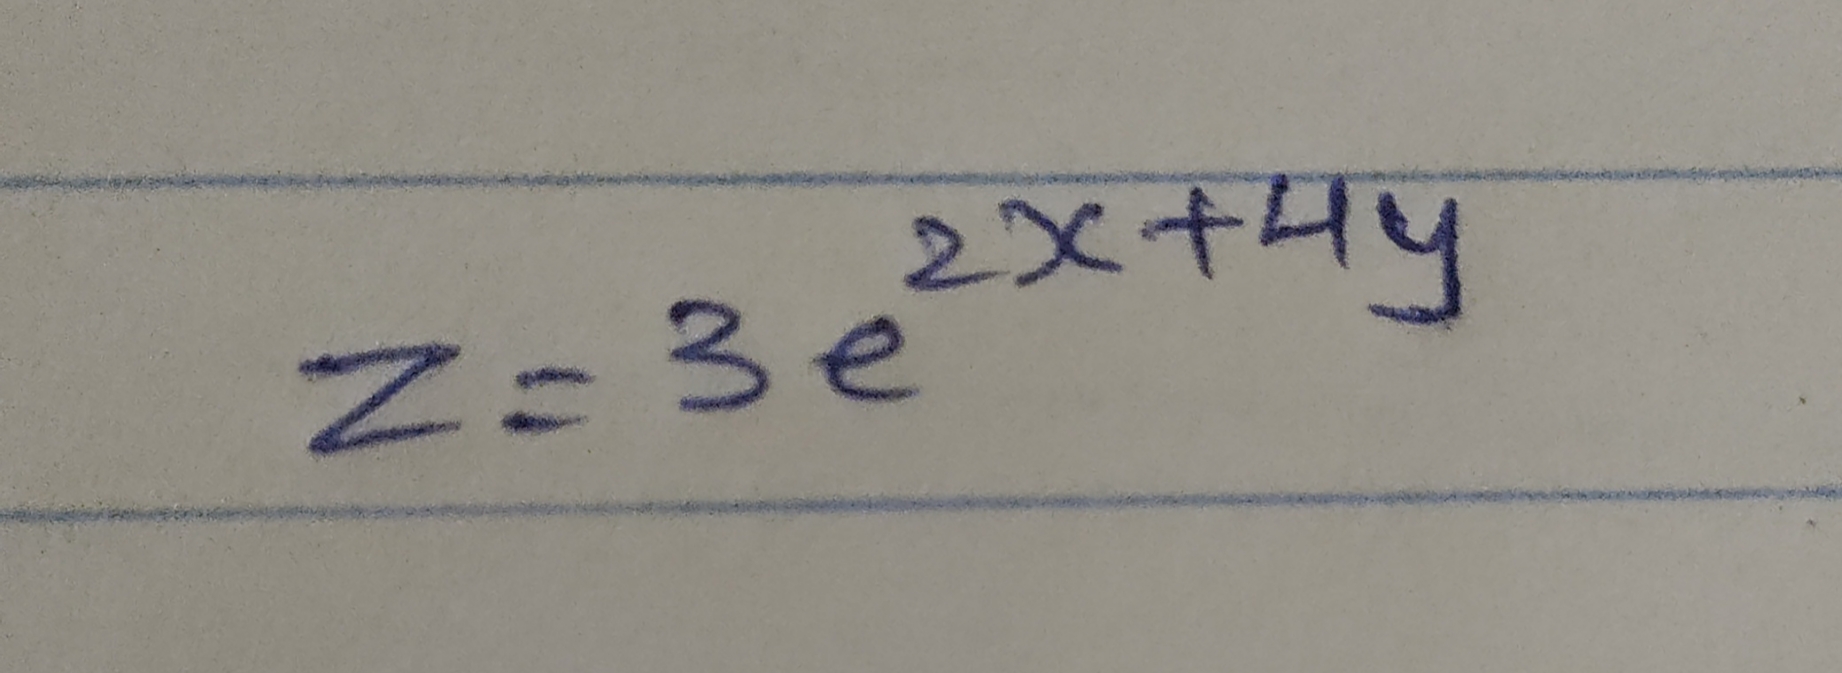 z = 3e^{2x+4y}